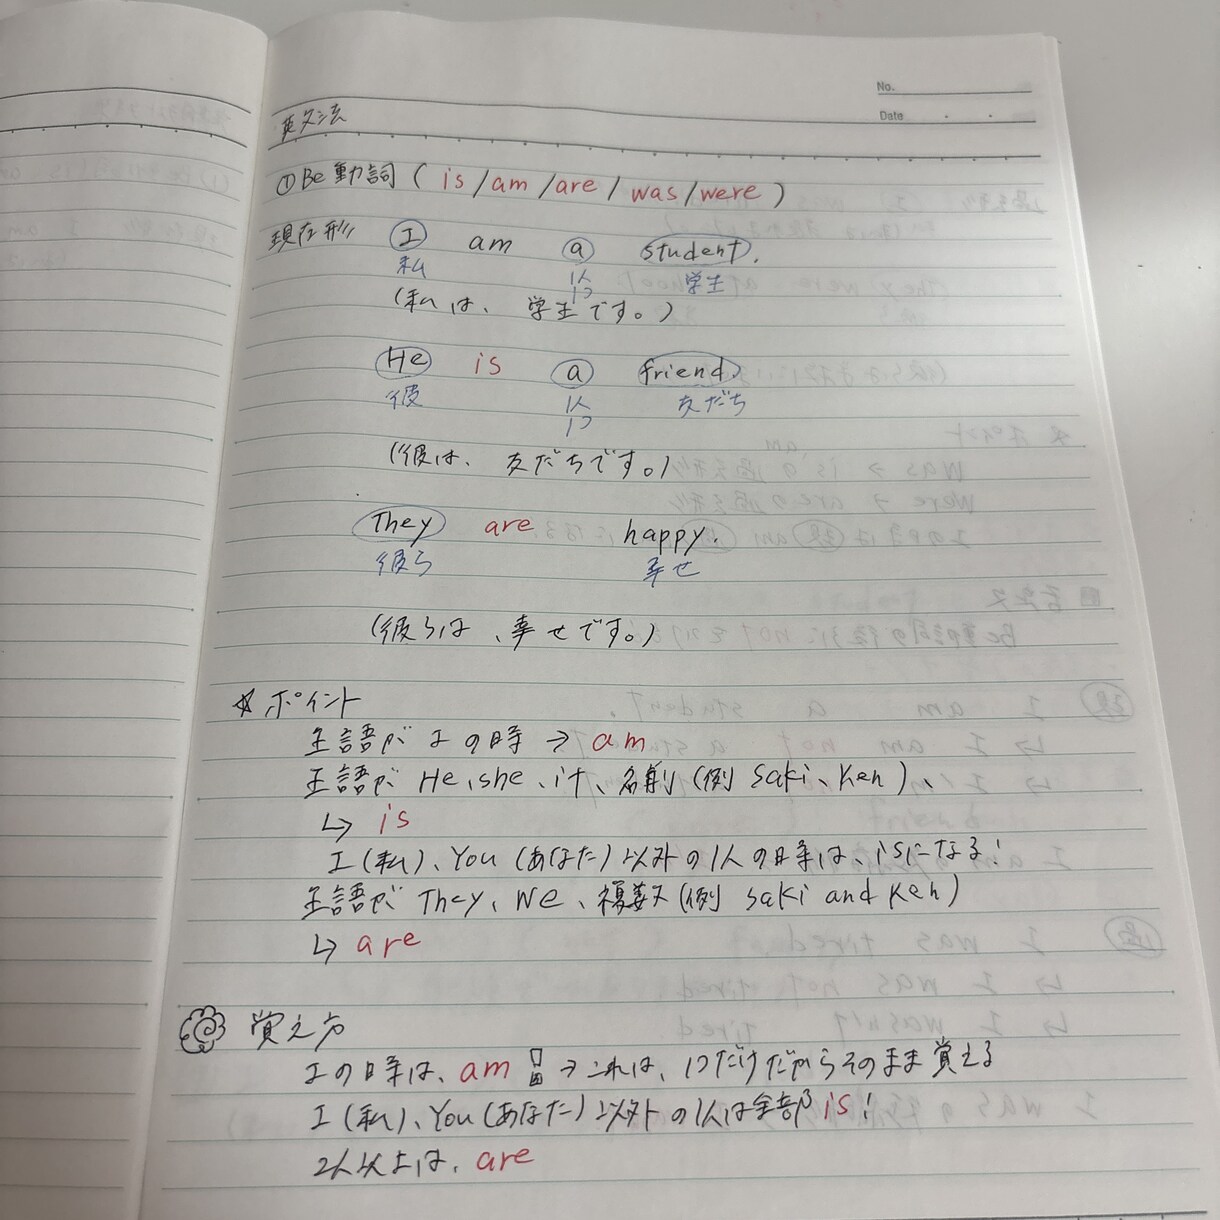 No.
Date
英文法
①Be動詞 ( is /am /are / was/were )
現在形 I am a student.
私 1人 学生
1つ
(私は、学生です。)
He is a friend.
彼 1人 友だち
1つ
(彼は、友だちです。)
They are happy.
彼ら 幸せ
(彼らは、幸せです。)
☆ ポイント
主語が Iの時 → am
主語が He、she、it、名前 (例 Saki、Ken)、
↳ is
I (私)、You (あなた) 以外の1人の時は、isになる!
主語が They、We、複数 (例 Saki and Ken)
↳ are
覚え方
Iの時は、am → これは、1つだけだからそのまま覚える
I (私)、You (あなた) 以外の1人は全部 is!
2人以上は、are